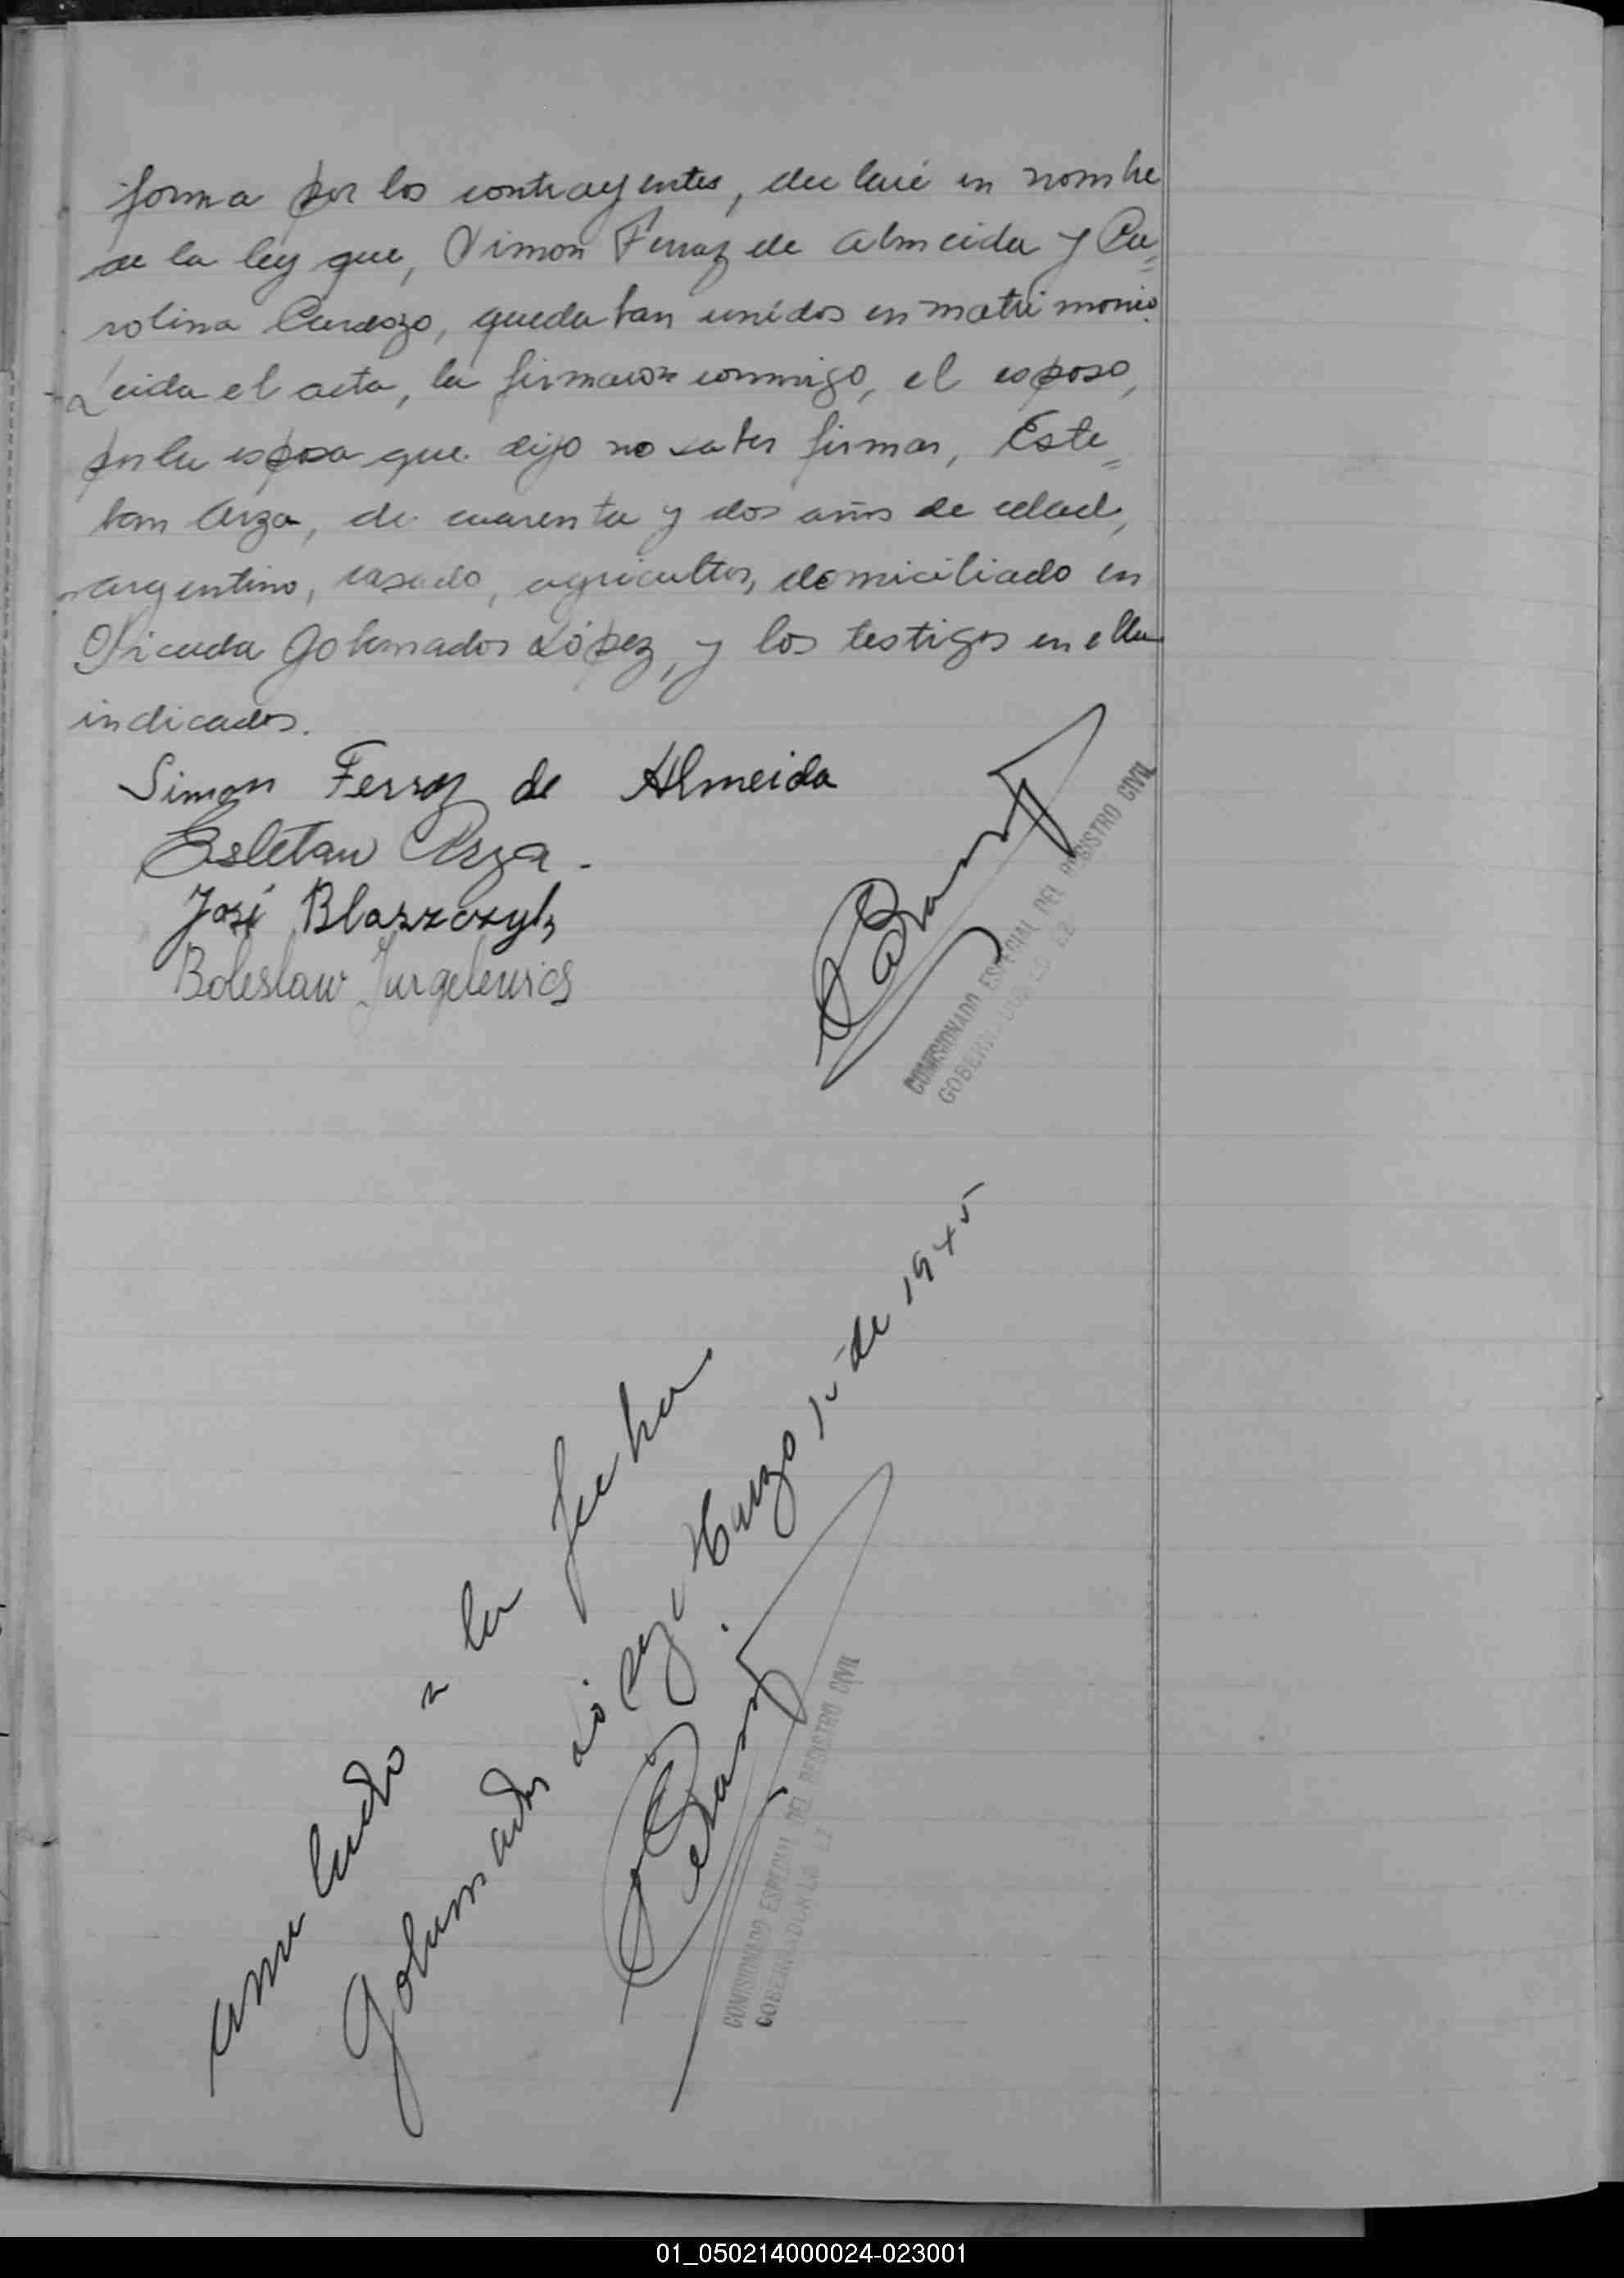 forma por los contrayentes, declaré en nombre
de la ley que, Simon Ferraz de Almeida y Ca=
rolina Cardozo, quedaban unidos en matrimonio.
Leida el acta, la firmaron conmigo, el esposo,
por la esposa que dijo no saber firmar, Este=
ban Arza, de cuarenta y dos años de edad,
argentino, casado, agricultor, domiciliado en
Picada Gobernador López, y los testigos en ella
indicados.
Simon Ferraz de Almeida
Esteban Arza.
José Blaszczyk
Boleslaw Jurgelewics
COMISIONADO ESPECIAL DEL REGISTRO CIVIL
GOBERNADOR LOPEZ
a la fecha
Gobernador López, Marzo 15 de 1945
COMISIONADO ESPECIAL DEL REGISTRO CIVIL
GOBERNADOR LOPEZ
01_050214000024-023001